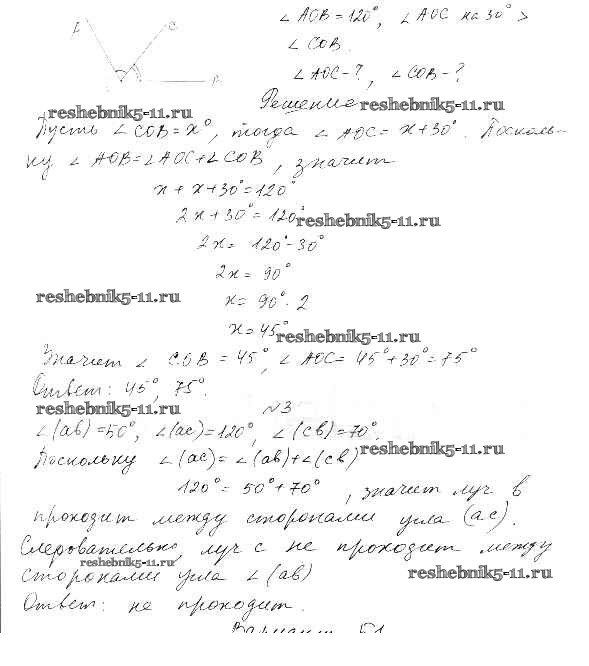 A C
O B
∠ AOB = 120°, ∠ AOC на 30° >
∠ COB.
∠ AOC - ?, ∠ COB - ?
Решение reshebnik5-11.ru
reshebnik5-11.ru
Пусть ∠ COB = x°, тогда ∠ AOC = x + 30°. Посколь-
ку ∠ AOB = ∠ AOC + ∠ COB, значит
x + x + 30° = 120°
2x + 30° = 120° reshebnik5-11.ru
2x = 120° - 30°
2x = 90°
reshebnik5-11.ru x = 90° · 2
x = 45° reshebnik5-11.ru
Значит ∠ COB = 45°, ∠ AOC = 45° + 30° = 75°
Ответ: 45°, 75°.
reshebnik5-11.ru №3
∠(ab) = 50°, ∠(ac) = 120°, ∠(cb) = 70°.
Поскольку ∠(ac) = ∠(ab) + ∠(cb) reshebnik5-11.ru
120° = 50° + 70°, значит луч b
проходит между сторонами угла (ac).
Следовательно, луч c не проходит между
reshebnik5-11.ru
сторонами угла ∠(ab) reshebnik5-11.ru
Ответ: не проходит.
Вариант 51